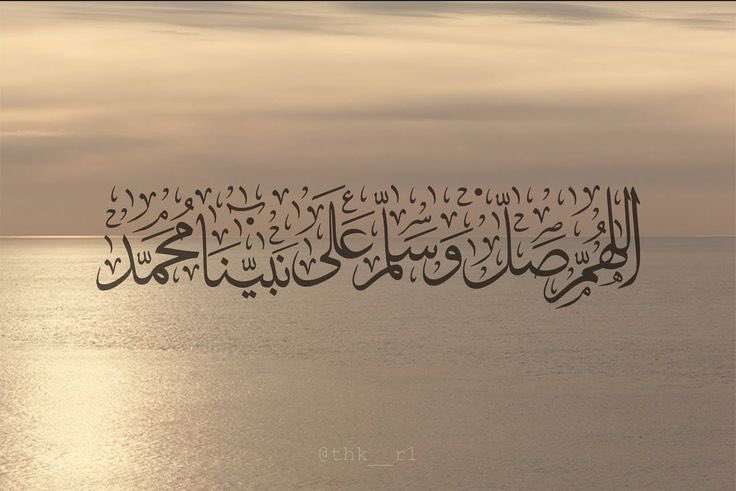 اللهُمَّ صَلِّ وَسَلِّمْ عَلَى نَبِيِّنَا مُحَمَّدْ
@thk__r1